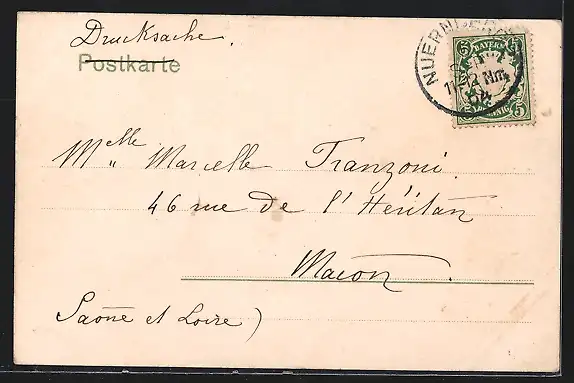 Drucksache.
Postkarte
NUERNBERG
Nm.
5 BAYERN 5
5 5
Melle Marcelle Tranzoni.
46 rue de l'Héritan
Macon.
Saône et Loire)